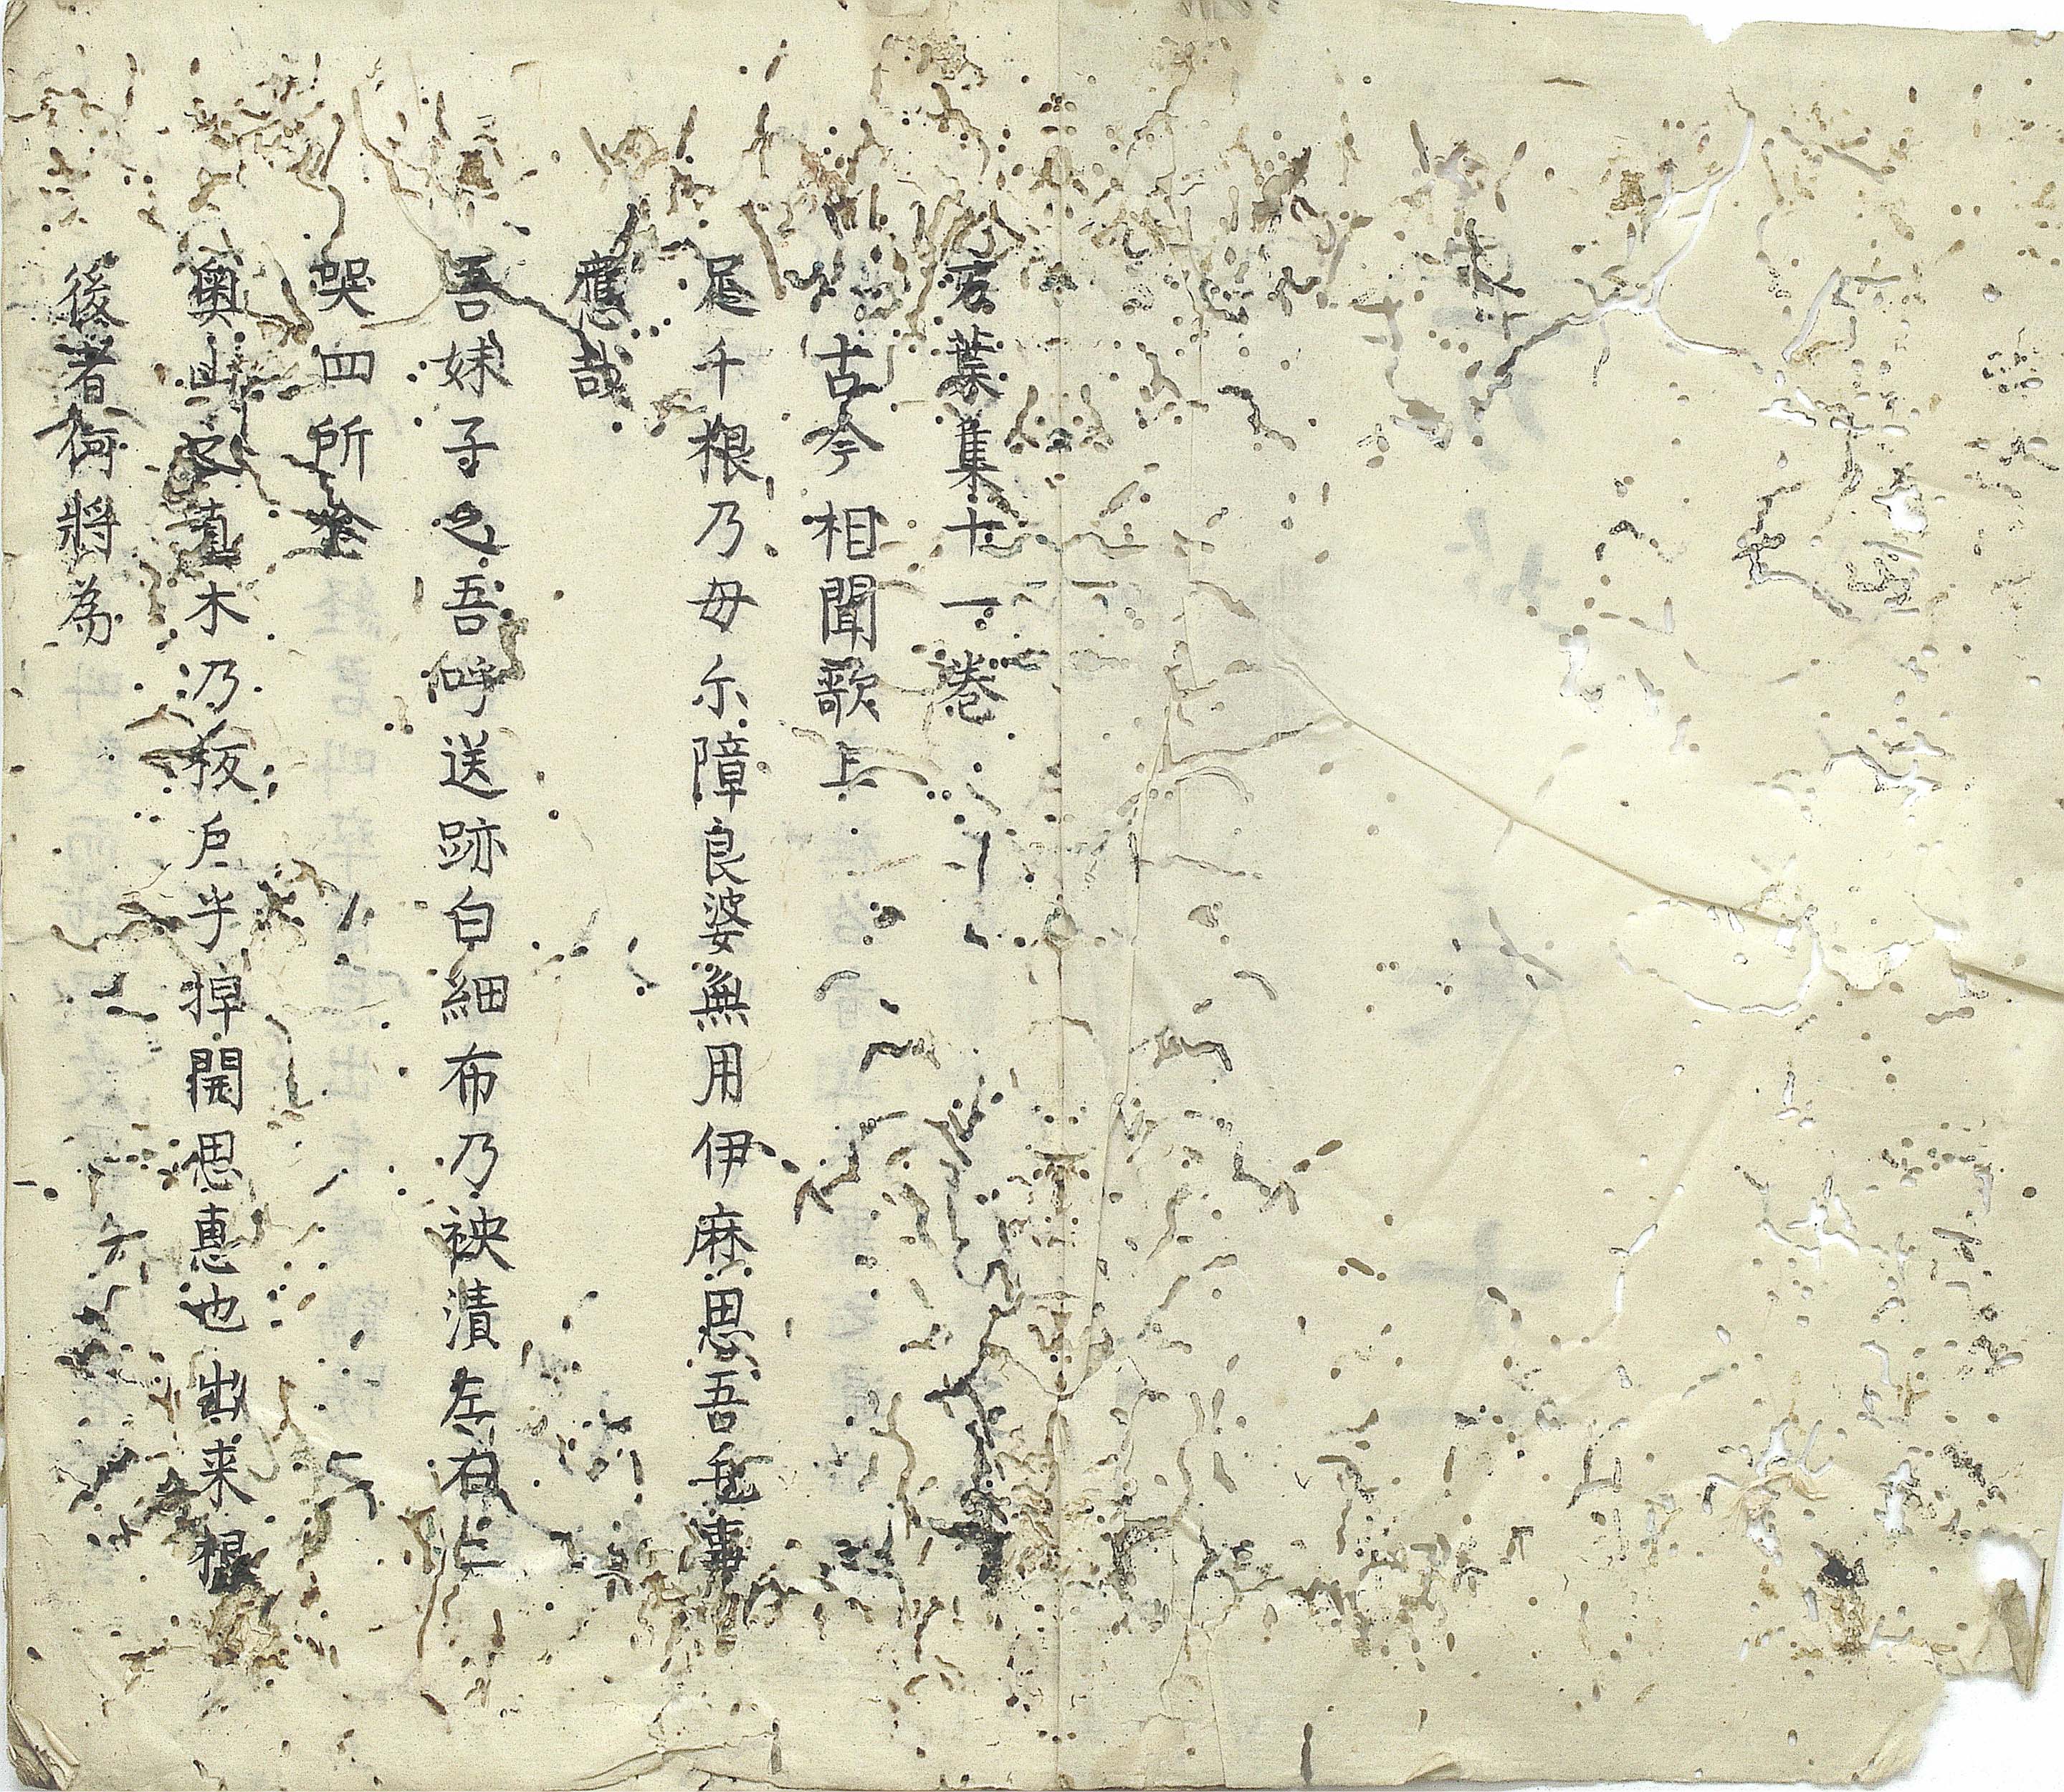 万葉集十一巻
古今相聞歌上
足千根乃母尓障良婆無用伊麻思吾毛事
應哉
吾妹子之吾呼送跡白細布乃袂漬左右二
哭四所念
奥山之真木乃板戸乎押開思恵也出来根
後者何將為